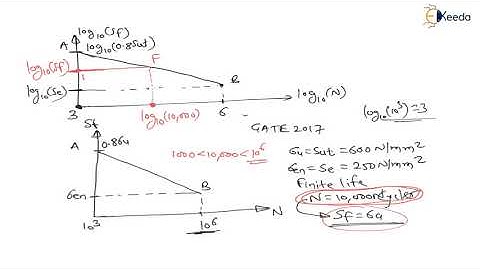 Keeda
log₁₀(Sf)
A
log₁₀(0.8Sut)
F
log₁₀(Sf)
B
log₁₀(Se)
3
6
log₁₀(N)
log₁₀(10,000)
log₁₀(10³)=3
Sf
GATE 2017
A
0.8σu
1000<10,000<10⁶
σu=Sut=600N/mm²
σen=Se=250N/mm²
Finite life
N=10,000 cycles
Sf=σa
σen
B
N
10³
10⁶